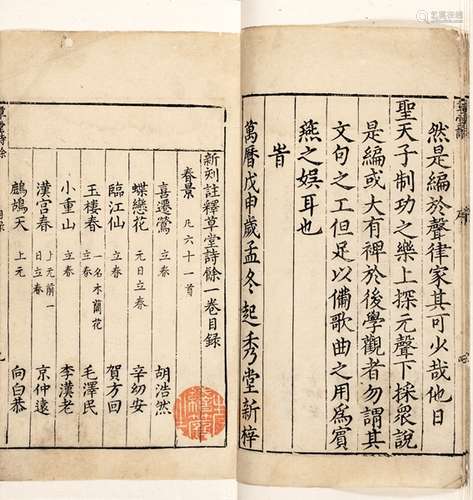 然是編於聲律家其可少哉他日
聖天子制功之樂上探元聲下採衆說
是編或大有裨於後學觀者勿謂其
文句之工但足以備歌曲之用為賓
燕之娛耳也
旹
萬曆戊申歲孟冬起秀堂新梓
新刻註釋草堂詩餘一卷目錄
春景 凡六十一首
喜遷鶯 立春 胡浩然
蝶戀花 元日立春 辛幼安
臨江仙 立春 賀方回
玉樓春 一名木蘭花 立春 毛澤民
小重山 立春 李漢老
漢宮春 上元前一日立春 京仲遠
鷓鴣天 上元 向白恭
草堂詩餘 目錄